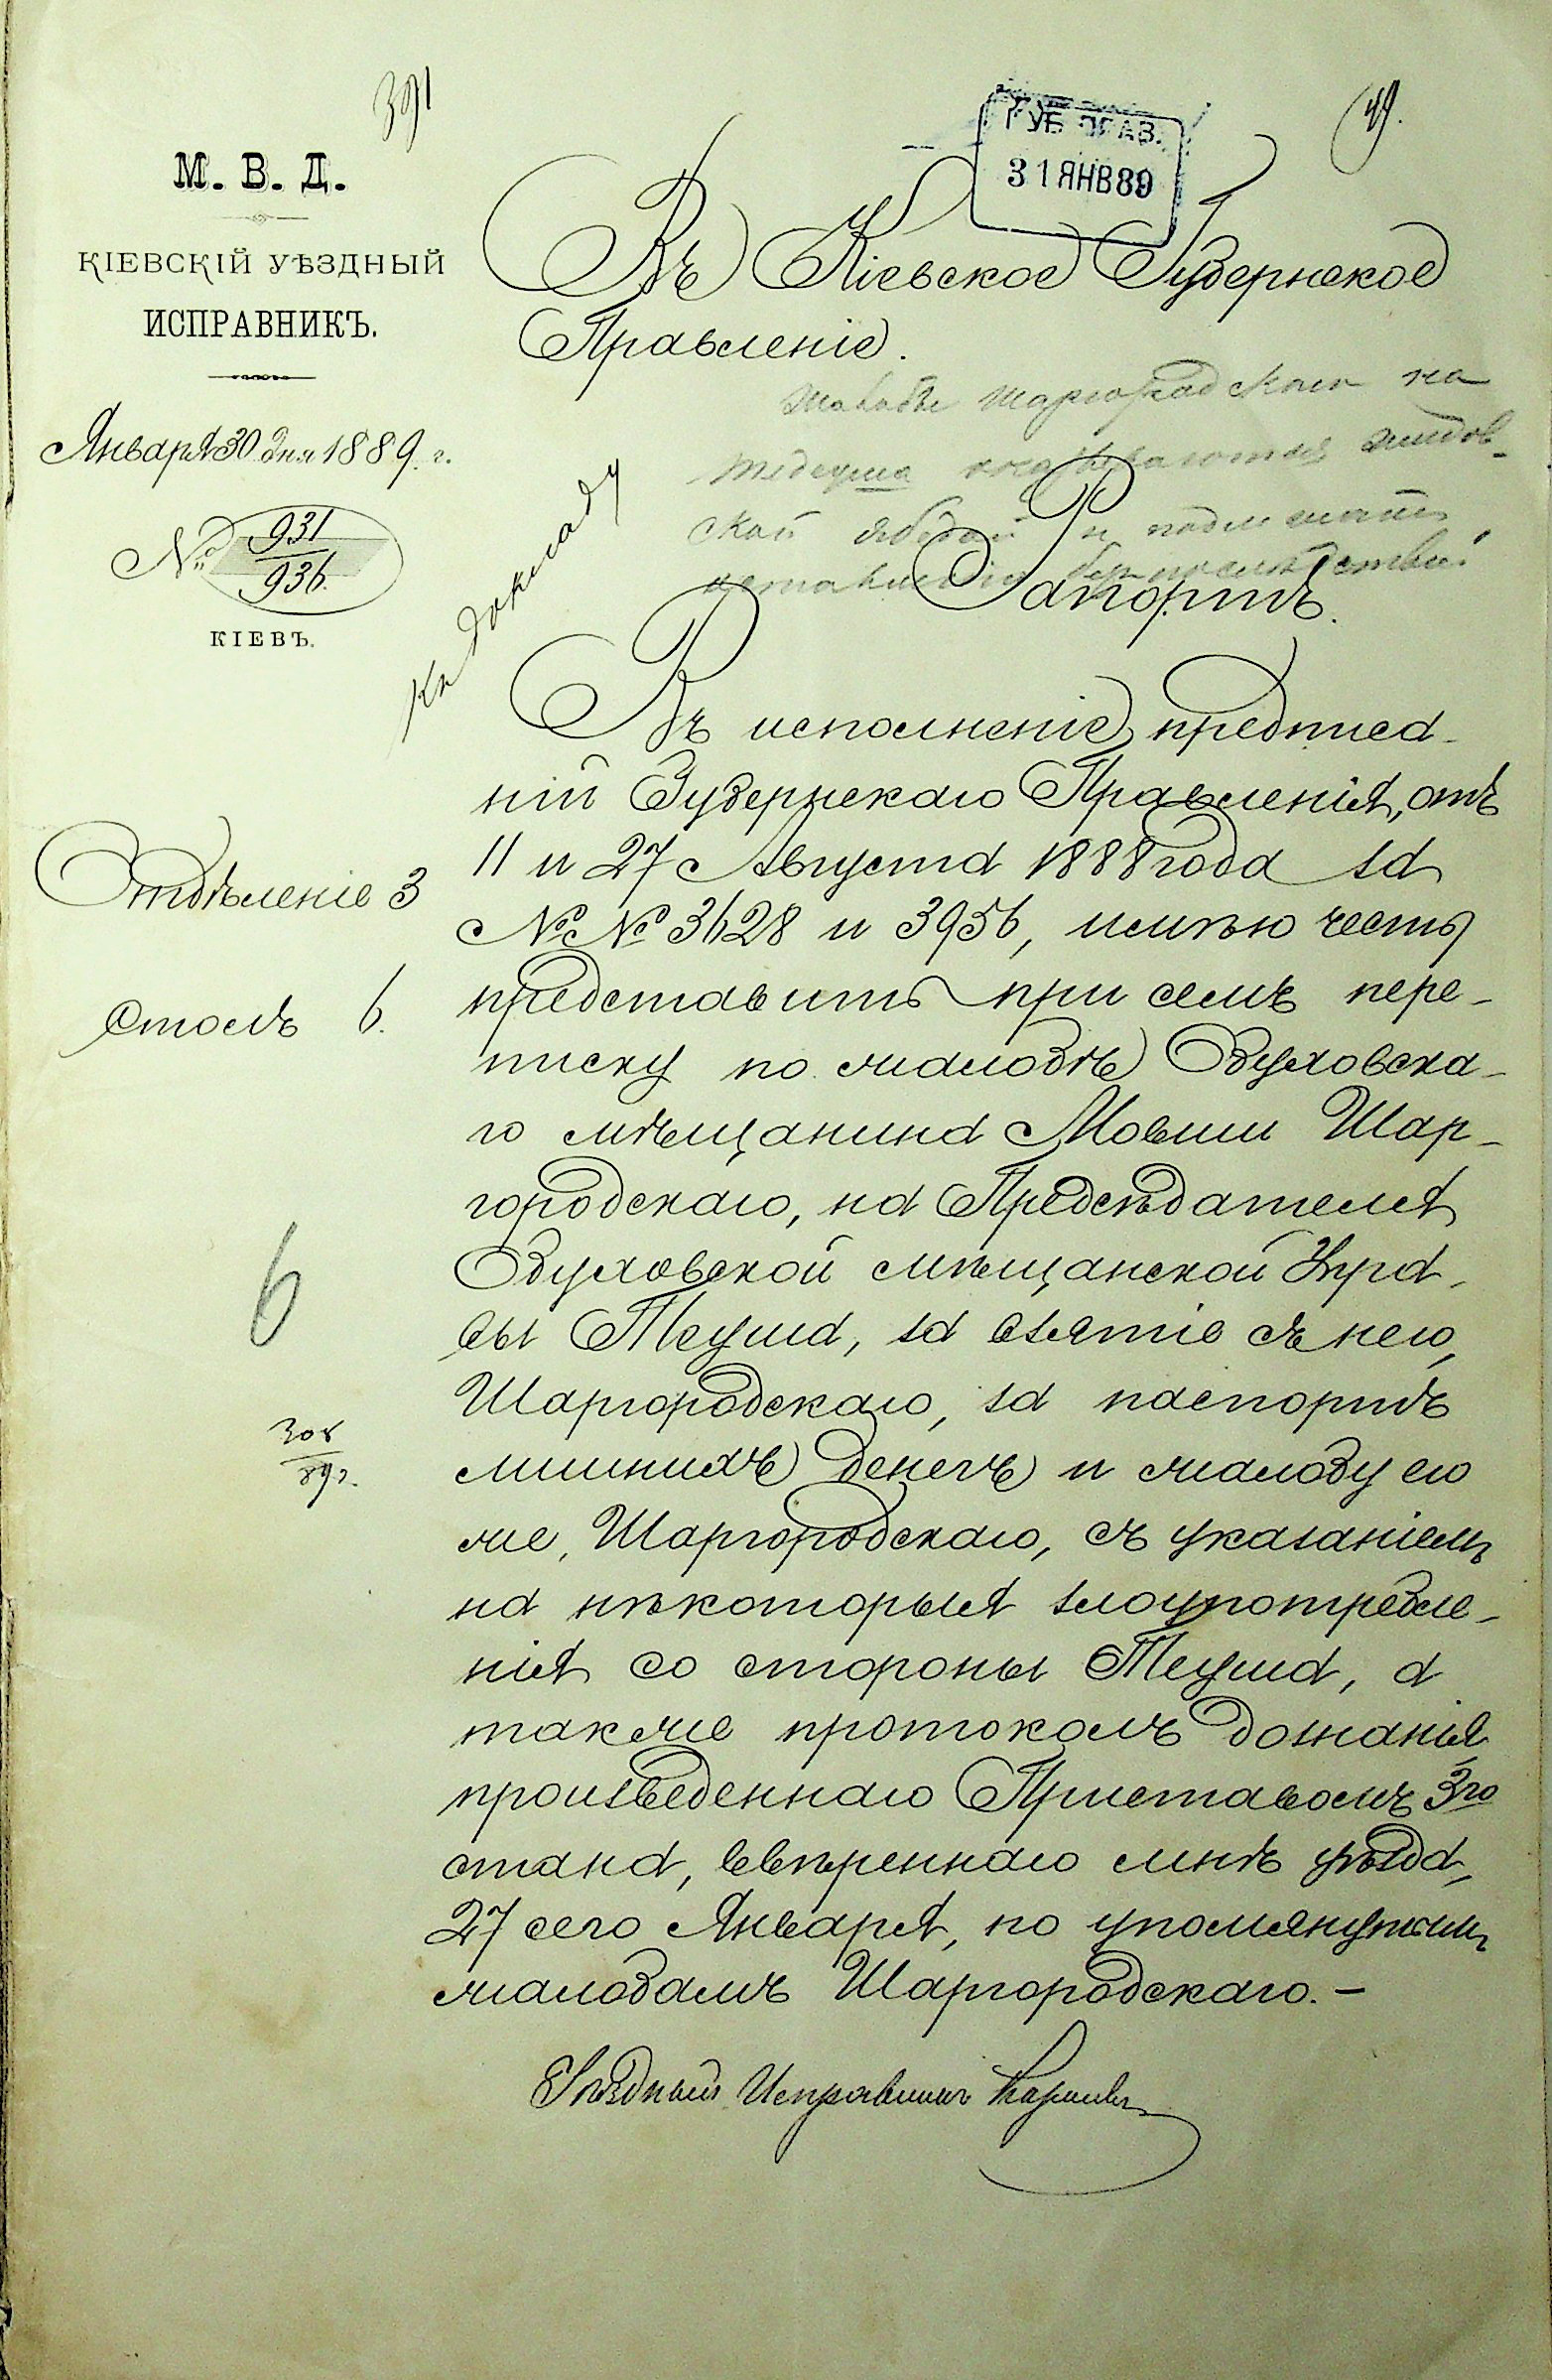 391
49.
ГУБ. ПРАВ.
31 ЯНВ 89
М. В. Д.
КІЕВСКІЙ УѢЗДНЫЙ
ИСПРАВНИКЪ.
Января 30 дня 1889 г.
№ 931
936
КІЕВЪ.
Отдѣленіе 3
Столъ 6.
6
308
89 г.
Къ докладу
Въ Кіевское Губернское
Правленіе.
жалобы Шаргородскаго на
оказываются жидов-
ской ябедой и подлежатъ
оставленію безъ послѣдствій
Рапортъ.
Въ исполненіе предписа-
ній Губернскаго Правленія, отъ
11 и 27 Августа 1888 года за
№№ 3628 и 3956, имѣю честь
представить при семъ пере-
писку по жалобѣ Обуховска-
го мѣщанина Мовши Шар-
городскаго, на Предсѣдателя
Обуховской мѣщанской Упра-
вы Теуша, за взятіе съ него,
Шаргородскаго, за паспортъ
лишнихъ денегъ и жалобу его
же, Шаргородскаго, съ указаніемъ
на нѣкоторыя злоупотребле-
нія со стороны Теуша, а
также протоколъ дознанія
произведеннаго Приставомъ 3го
стана, ввѣреннаго мнѣ уѣзда,
27 сего Января, по упомянутымъ
жалобамъ Шаргородскаго.-
Уѣздный Исправникъ